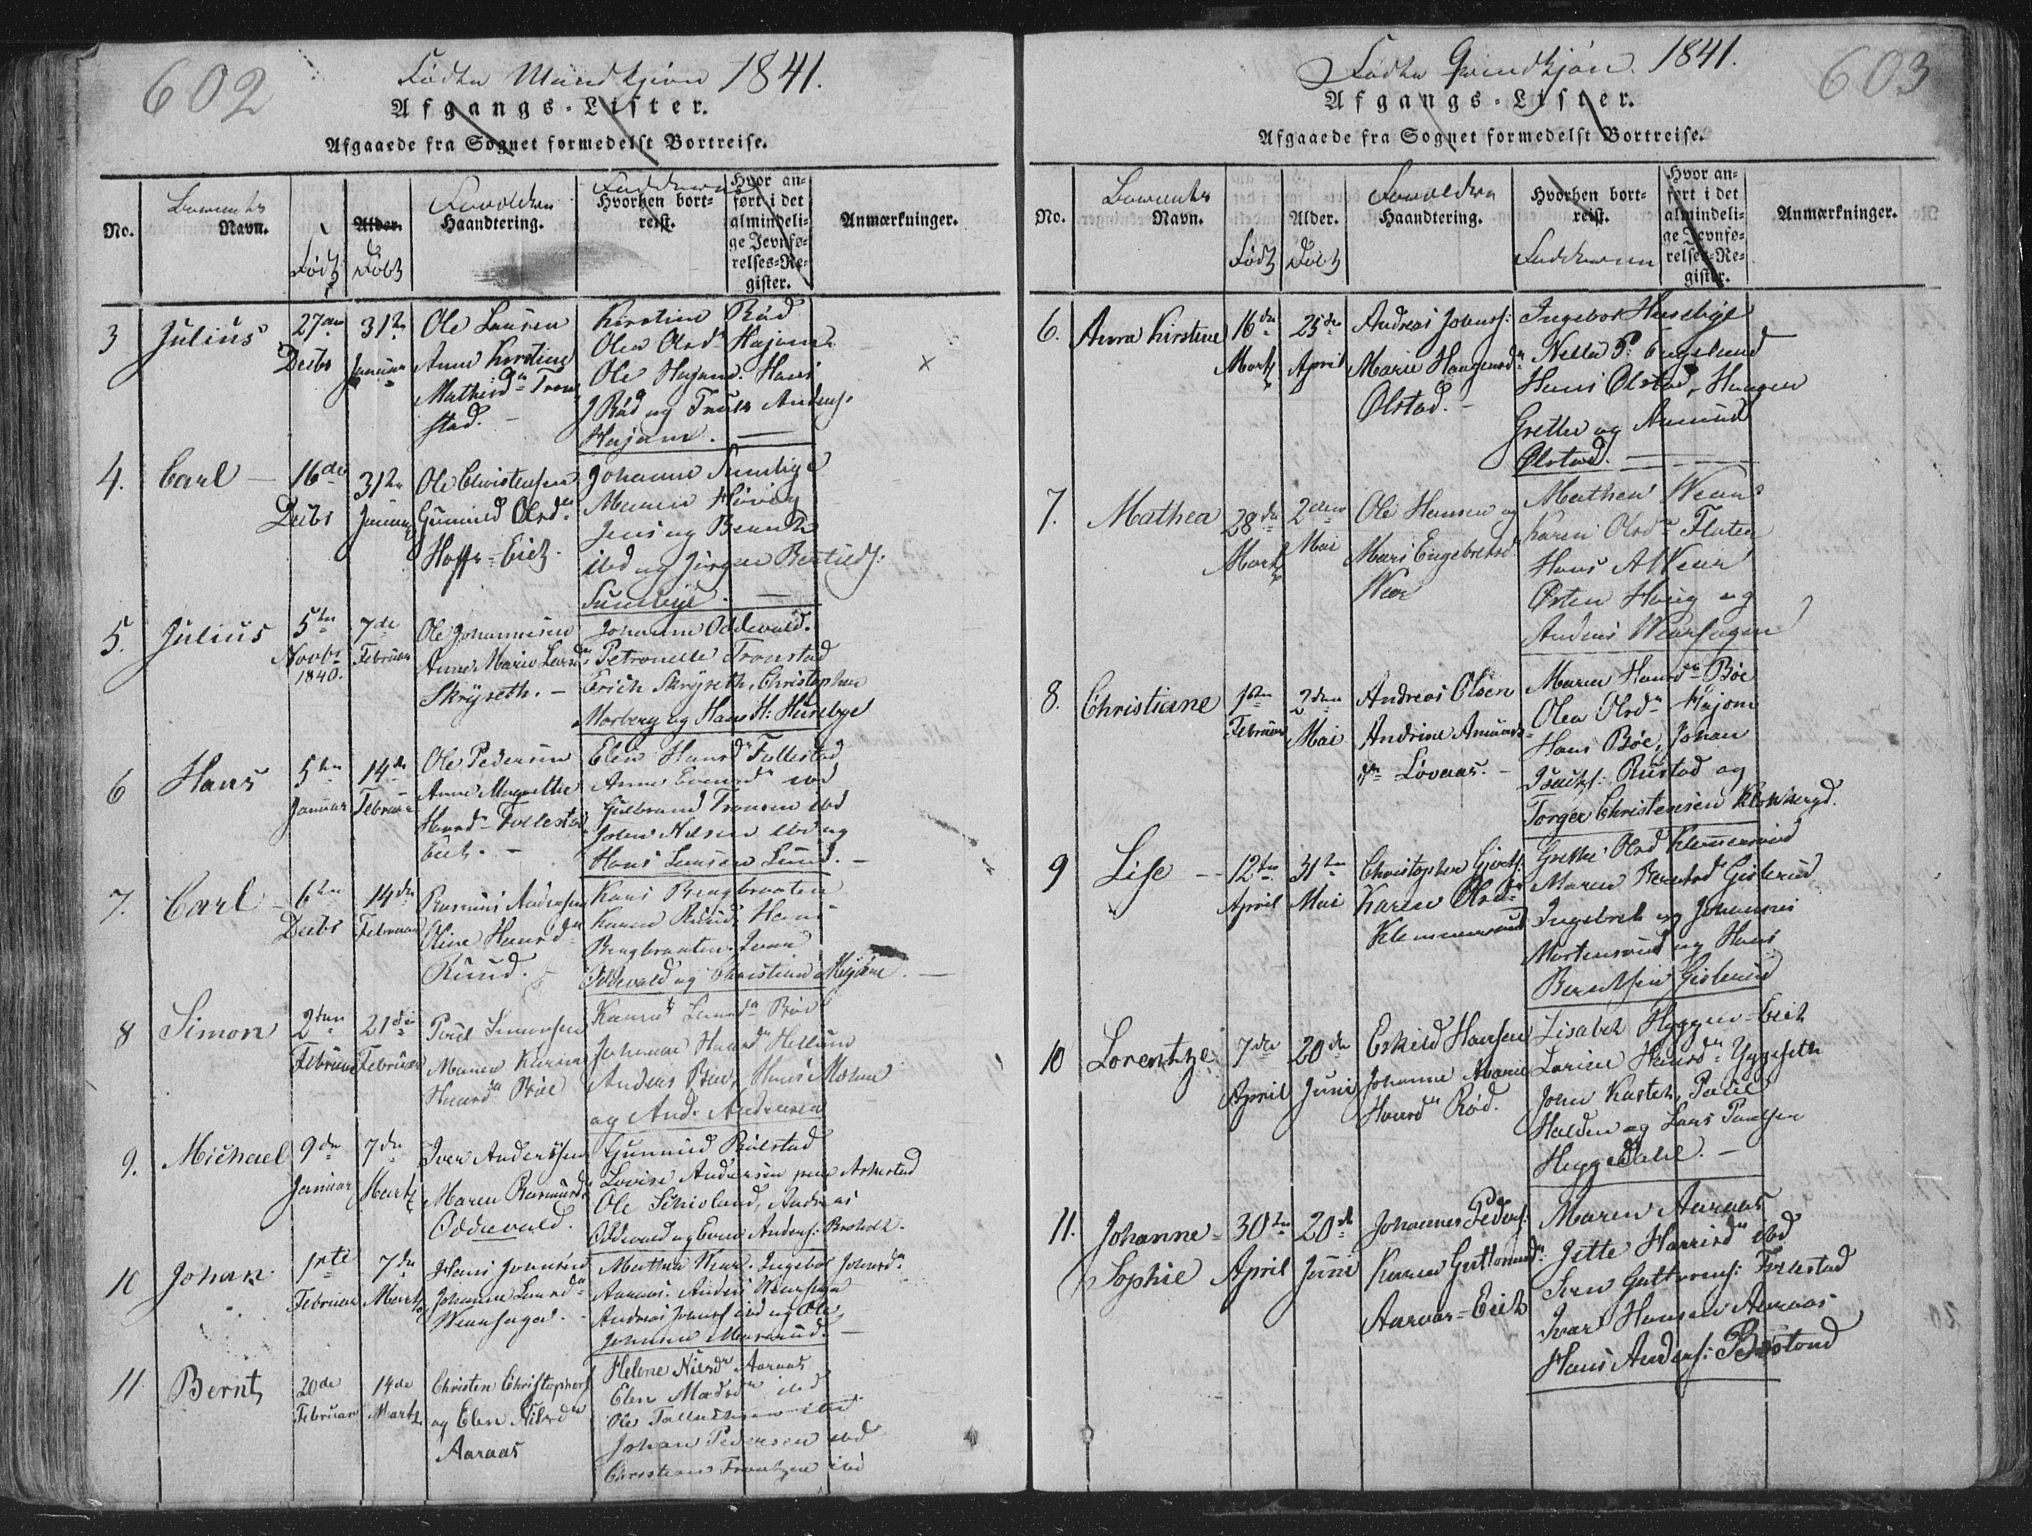 602
Fødte Mandkjøn 1841.
Afgangs-Lister.
Afgaaede fra Sognet formedelst Bortreise.
No.
Barnets
Navn.
Født
Alder.
Døbt
Forældres
Haandtering.
Faddernes
Hvorhen bort-
reist.
Hvor an-
ført i det
almindeli-
ge Jevnfø-
relses-Re-
gister.
Anmærkninger.
3 Julius
27de
Decbr
31te
Januar
Ole Larsen
Anne Kirstine
Mathisdr Tron
stad.
Kirstine Rød
Olea Olsdr Hajem
Ole Hajem. Hans
Rød og Truls Anders:
Hajem.
4. Carl
16de
Decbr
31te
Januar
Ole Christensen
Gunnild Olsdr
Hoffs-Eiet.
Johanne Sundbye
Maren Høvig
Jens og Bernt
ibd og Jørgen Bertils:
Sundbye.
5. Julius
5te
Novbr
1840.
7de
Februar
Ole Johannesen
Anne Marie Larsdr
Skryseth.
Johanne Oddevald.
Petronelle Tronstad
Erich Skryseth, Christopher
Morberg og Hans H: Husebye
6 Hans
5te
Januar
14de
Februar
Ole Pedersen
Anne Magrethe
Hansdr Follestad
Eiet.
Elen Hansdr Follestad
Anne Evensdr ibd
Gulbrand Tronsen ibd
John Nilsen ibd og
Hans Larsen Lund.
7. Carl
6te
Decbr
14de
Februar
Rasmus Andersen
Oline Hansdr
Ruud.
Kari Bragbraaten
Karen Ruud, Hans
Bragbraaten, Iver
Oddevald og Christian Mejøe.
8 Simon
2den
Februar
21de
Februar
Poul Simonsen
Maren Karine
Hansdr Bøe
Karen Larsdr Bøe
Johanne Hansdr Hellum
Anders Bøe, Hans Moen
og And. Andersen
9. Michael
9de
Januar
7de
Martz
Iver Andersen
Maren Rasmusdr
Oddevald.
Gunnild Rølstad
Lovise Andersen
Ole Schioland, Andreas
Oddevald og Even Anders: Broholt.
10 Johan
1ste
Februar
7de
Martz
Hans Johnsen
Johanne Larsdr
Wearhagen.
Mathea Wear. Ingebor Johnsdr
Aaraas. Anders Wearhagen
Andreas Johns: ibd og Ole
Johnsen Morserud.
11 Bernt
20de
Februar
14de
Martz
Christen Christophers:
og Elen Nilsdr
Aaraas
Helene Nilsdr Aaraas
Elen Madsdr ibd
Ole Tollefsen ibd
Johan Pedersen ibd
Christian Frantzen ibd
603
Fødte Qvindkjøn. 1841.
Afgangs-Lister.
Afgaaede fra Sognet formedelst Bortreise.
No.
Barnets
Navn.
Født
Alder.
Døbt
Forældres
Haandtering.
Hvorhen bort-
reist.
Fadderne
Hvor an-
ført i det
almindeli-
ge Jevnfø-
relses-Re-
gister.
Anmærkninger.
6. Anna Kirstine
16de
Martz
25de
April
Andreas Johns:
Marie Haagensdr
Olstad.
Ingebor Husebye
Nella P: Engelund
Hans Olstad, Haagen
Grette og Amund
Olstad.
7. Mathea
28de
Martz
2den
Mai
Ole Hansen og
Mari Engebretsd.
Wear
Mathea Wear
Karen Olsdr Flaten
Hans A Wear
Østen Høvig og
Anders Wearhagen
8. Christiane
1ste
Februar
2den
Mai
Andreas Olsen
Andrine Amunds-
dr Løvaas.
Maren Hansdr Bøe
Olea Olsdr Hajem
Hans Bøe, Johan
Isachs: Rustad og
Torger Christensen Klokkergd.
9 Lise
12te
April
31te
Mai
Christopher Gjerts:
Karen Olsdr
Klemmersrud
Grethe Olsd Klemmersrud
Maren Berntsd Gislerud
Ingebret og Johannes
Mortensrud og Hans
Berntsen Gislerud
10 Lorentze
7de
April
20de
Juni
Eskild Hansen
Johanne Marie
Hansdr Rød.
Lisabet Hyggen-Eiet
Larine Hansdr Yggeseth
John Kastet, Poul
Halden og Lars Paulsen
Heggedahl.
11. Johanne
Sophie
30te
April
20de
Juni
Johannes Peders:
Karen Guttormsdr
Aaraas-Eiet
Maren Aaraas
Jette Hansdr ibd
Iver Guttorms: Follestad
Ivar Hansen Aaraas
Hans Anders: Bøstad